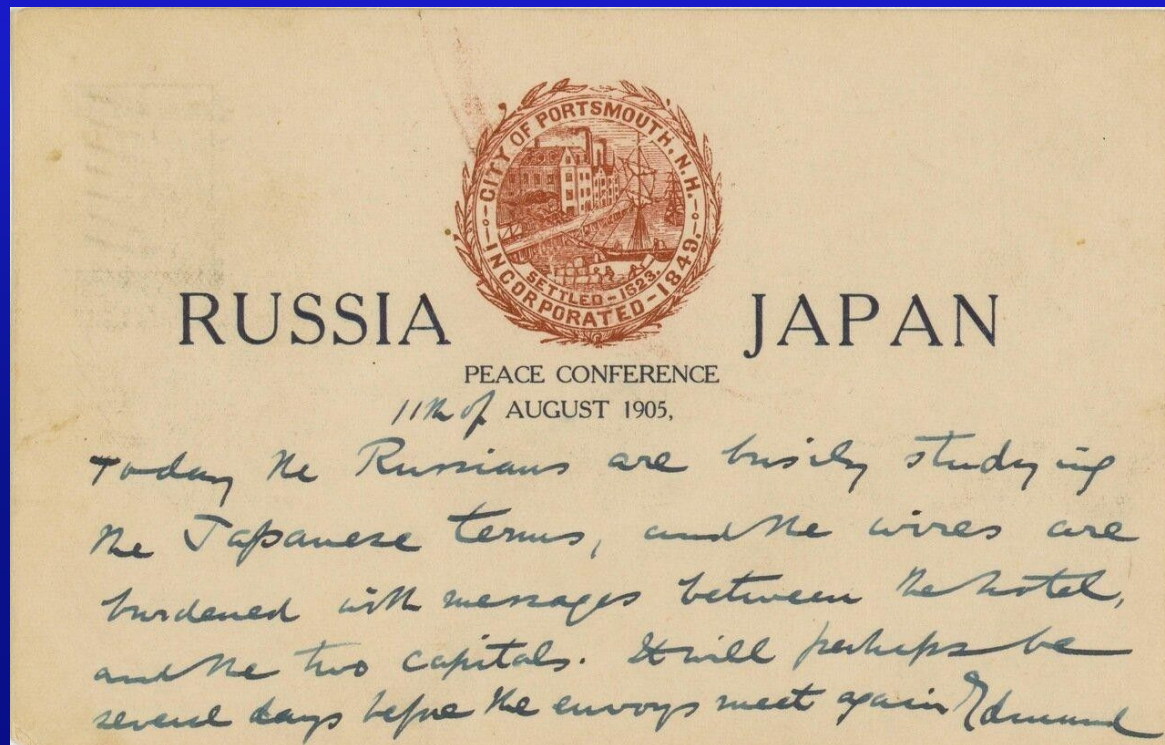 CITY OF PORTSMOUTH, N.H.
SETTLED - 1623.
INCORPORATED - 1849.
RUSSIA JAPAN
PEACE CONFERENCE
11th of AUGUST 1905,
Today the Russians are busily studying
the Japanese terms, and the wires are
burdened with messages between the hotel,
and the two capitals. It will perhaps be
several days before the envoys meet again Edmund